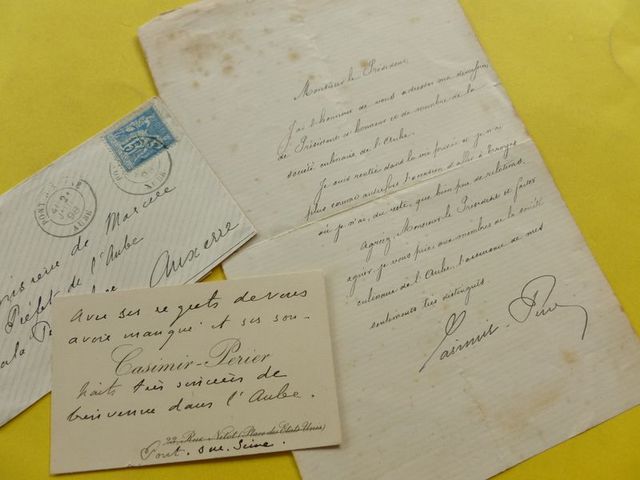 Monsieur le Président,
J'ai l'honneur de vous adresser ma démission
de Président d'honneur et de membre de la
société culinaire de l'Aube.
Je suis rentré dans la vie privée et je n'ai
plus comme autrefois l'occasion d'aller à Troyes
où je n'ai, du reste, que bien peu de relations.
Agréez, Monsieur le Président et faites
agréer, je vous prie, aux membres de la société
culinaire de l'Aube, l'assurance de mes
sentiments très distingués
Casimir-Perier
de
Préfet de l'Aube
Auxerre
15
Avec ses regrets de vous
avoir manqué et ses sou-
Casimir-Perier
haits très sincères de
bienvenue dans l'Aube.
22, Rue Nitot (Place des États-Unis)
Pont-sur-Seine.